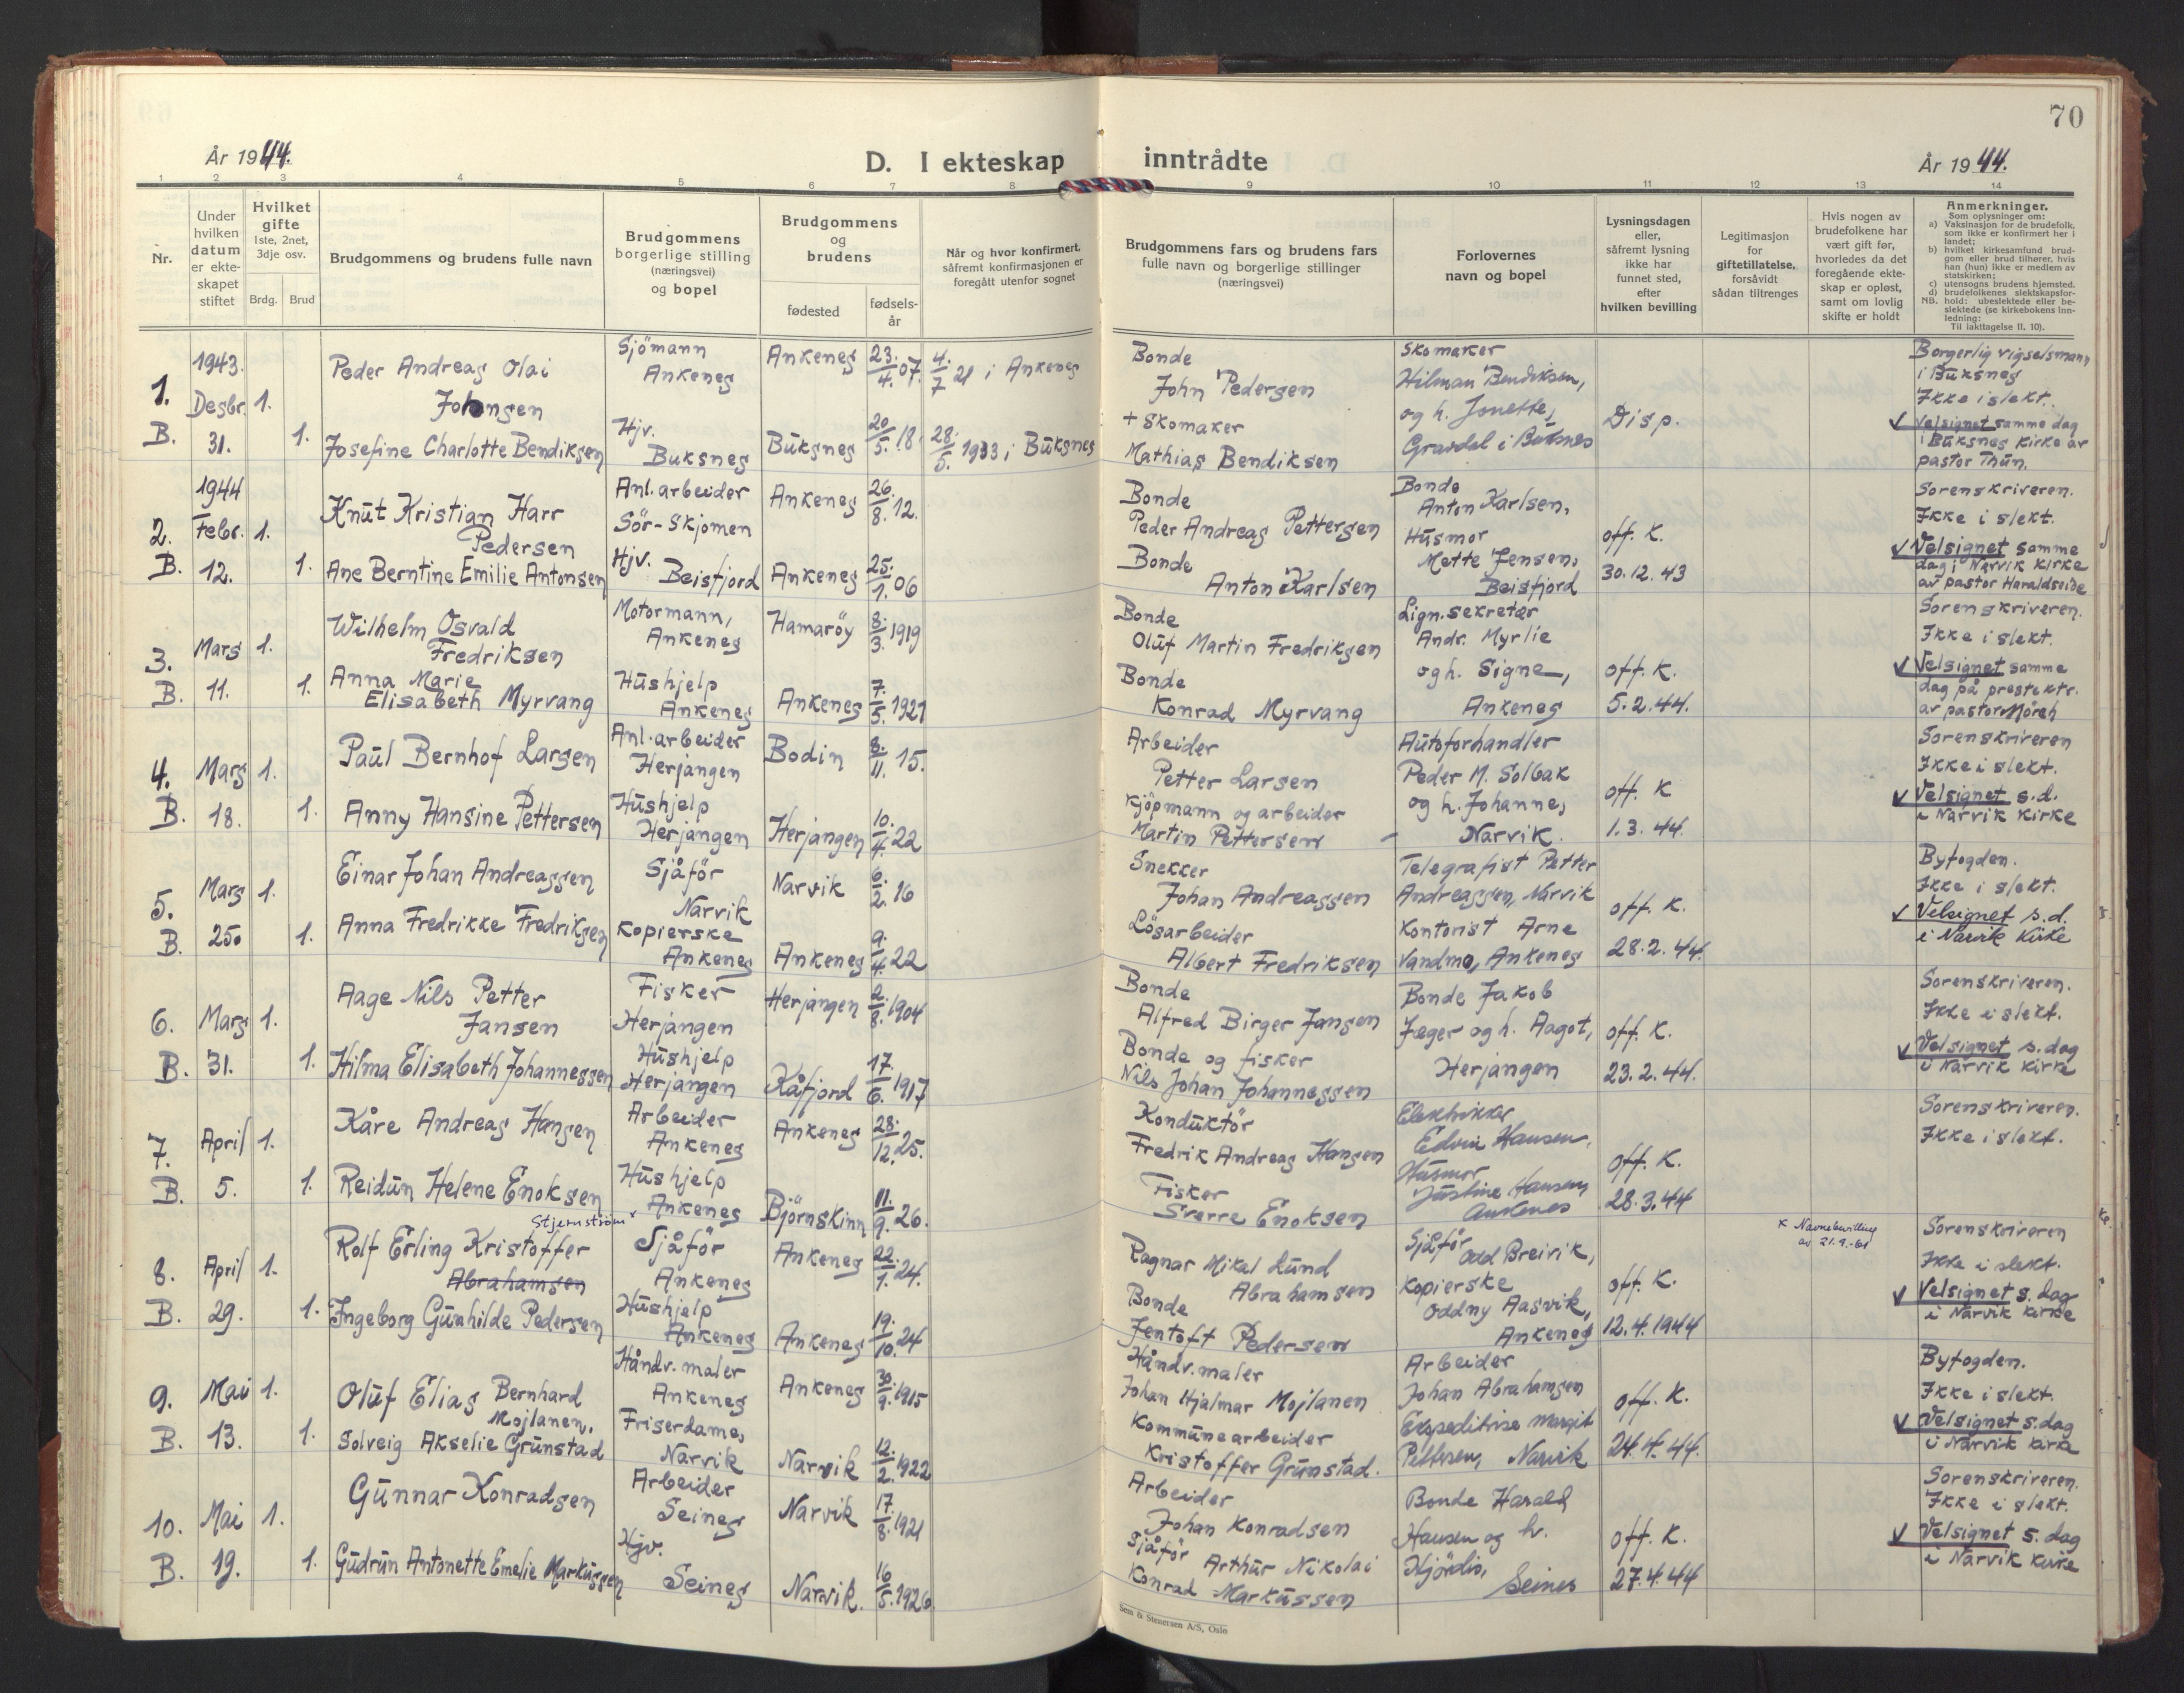 70
År 1944.
D. I ekteskap inntrådte
År 1944.
1 2 3 4 5 6 7 8 9 10 11 12 13 14
Nr.
Under
hvilken
datum
er ekte-
skapet
stiftet
Hvilket
gifte
1ste, 2net,
3dje osv.
Brdg. Brud
Brudgommens og brudens fulle navn
Brudgommens
borgerlige stilling
(næringsvei)
og bopel
Brudgommens
og
brudens
fødested
fødsels-
år
Når og hvor konfirmert,
såfremt konfirmasjonen er
foregått utenfor sognet
Brudgommens fars og brudens fars
fulle navn og borgerlige stillinger
(næringsvei)
Forlovernes
navn og bopel
Lysningsdagen
eller,
såfremt lysning
ikke har
funnet sted,
efter
hvilken bevilling
Legitimasjon
for
giftetillatelse,
forsåvidt
sådan tiltrenges
Hvis nogen av
brudefolkene har
vært gift før,
hvorledes da det
foregående ekte-
skap er opløst,
samt om lovlig
skifte er holdt
Anmerkninger.
Som oplysninger om:
a) Vaksinasjon for de brudefolk,
som ikke er konfirmert her i
landet;
b) hvilket kirkesamfund brud-
gom eller brud tilhører, hvis
han (hun) ikke er medlem av
statskirken;
c) utensogns brudens hjemsted.
d) brudefolkenes slektskapsfor-
NB. hold: ubeslektede eller be-
slektede (se kirkebokens inn-
ledning:
Til iakttagelse II. 10).
1.
B.
1943.
Desbr.
31.
1.
1.
Peder Andreas Olai
Johansen
Josefine Charlotte Bendiksen
Sjömann
Ankenes
Hjv.
Buksnes
Ankenes 23/4. 07.
Buksnes 20/5. 18.
4/7 21 i Ankenes
28/5. 1933 i Buksnes
Bonde
John Pedersen
+ Skomaker
Mathias Bendiksen
Skomaker
Hilman Bendiksen,
og h. Jonette,
Gravdal i Buksnes
Disp.
Borgerlig vigselsmann
i Buksnes
Ikke i slekt.
✓ Velsignet samme dag
i Buksnes kirke av
pastor Thun.
2.
B.
1944
Febr.
12.
1.
1.
Knut Kristian Harr
Pedersen
Ane Berntine Emilie Antonsen
Anl.arbeider
Sör-Skjomen
Hjv.
Beisfjord
Ankenes 26/8. 12.
Ankenes 25/1. 06
Bonde
Peder Andreas Pettersen
Bonde
Anton Karlsen
Bonde
Anton Karlsen,
Husmor
Mette Jensen,
Beisfjord
off. K.
30.12.43
Sorenskriveren.
Ikke i slekt.
✓ Velsignet samme
dag i Narvik kirke
av pastor Haraldseide
3.
B.
Mars
11.
1.
1.
Wilhelm Osvald
Fredriksen
Anna Marie
Elisabeth Myrvang
Motormann,
Ankenes
Hushjelp
Ankenes
Hamaröy 8/3. 1919
Ankenes 7/5. 1921
Bonde
Oluf Martin Fredriksen
Bonde
Konrad Myrvang
Lign.sekretær
Andr. Myrlie
og h. Signe,
Ankenes
off. K.
5.2.44.
Sorenskriveren.
Ikke i slekt.
✓ Velsignet samme
dag på prestektr.
av pastor Mörch
4.
B.
Mars
18.
1.
1.
Paul Bernhof Larsen
Anny Hansine Pettersen
Anl.arbeider
Herjangen
Hushjelp
Herjangen
Bodin 8/11. 15.
Herjangen 10/4. 22
Arbeider
Petter Larsen
Kjöpmann og arbeider
Martin Pettersen
Autoforhandler
Peder M. Solbak
og h. Johanne,
Narvik.
off. K
1.3.44.
Sorenskriveren
Ikke i slekt.
✓ Velsignet s.d.
i Narvik kirke
5.
B.
Mars
25.
1.
1.
Einar Johan Andreassen
Anna Fredrikke Fredriksen
Sjåför
Narvik
Kopierske
Ankenes
Narvik 6/2. 16
Ankenes 9/4. 22
Snekker
Johan Andreassen
Lösarbeider
Albert Fredriksen
Telegrafist Petter
Andreassen, Narvik
Kontorist Arne
Vandmo, Ankenes
off. K.
28.2.44.
Byfogden.
Ikke i slekt.
✓ Velsignet s.d.
i Narvik kirke
6.
B.
Mars
31.
1.
1.
Aage Nils Petter
Jansen
Hilma Elisabeth Johannessen
Fisker
Herjangen
Hushjelp
Herjangen
Herjangen 2/8. 1904
Kåfjord 17/6. 1917
Bonde
Alfred Birger Jansen
Bonde og fisker
Nils Johan Johannessen
Bonde Jakob
Jæger og h. Aagot,
Herjangen
off. K.
23.2.44.
Sorenskriveren.
Ikke i slekt.
✓ Velsignet s.dag
i Narvik kirke
7.
B.
April
5.
1.
1.
Kåre Andreas Hansen
Reidun Helene Enoksen
Arbeider
Ankenes
Hushjelp
Ankenes
Ankenes 28/12. 25.
Björnskinn 11/9. 26.
Konduktör
Fredrik Andreas Hansen
Fisker
Sverre Enoksen
Elektriker
Edvin Hansen,
Husmor
Justine Hansen,
Ankenes
off. K.
28.3.44
Sorenskriveren.
Ikke i slekt.
8.
B.
April
29.
1.
1.
Stjernström x
Rolf Erling Kristoffer
Abrahamsen
Ingeborg Gunhilde Pedersen
Sjåför
Ankenes
Hushjelp
Ankenes
Ankenes 22/1. 24.
Ankenes 19/10. 24
Ragnar Mikal Lund
Abrahamsen
Bonde
Jentoft Pedersen
Sjåför
Odd Breivik,
Kopierske
Oddny Aasvik,
Ankenes
off. K.
12.4.1944
x Navnebevilling
av 21.9.-61
Sorenskriveren
Ikke i slekt.
✓ Velsignet s. dag
i Narvik kirke
9.
B.
Mai
13.
1.
1.
Oluf Elias Bernhard
Mojlanen,
Solveig Akselie Grunstad
Håndv.maler
Ankenes
Friserdame,
Narvik
Ankenes 30/9. 1915
Narvik 12/2. 1922
Håndv.maler
Johan Hjalmar Mojlanen
Kommunearbeider
Kristoffer Grunstad.
Arbeider
Johan Abrahamsen
Ekspeditrise Margit
Pettersen, Narvik
off. K.
24.4.44.
Byfogden.
Ikke i slekt.
✓ Velsignet s.dag
i Narvik kirke
10.
B.
Mai
19.
1.
1.
Gunnar Konradsen
Gudrun Antonette Emelie Markussen
Arbeider
Seines
Hjv.
Seines
Narvik 17/8. 1921
Narvik. 16/5. 1926.
Arbeider
Johan Konradsen
Sjåför Arthur Nikolai
Konrad Markussen
Bonde Harald
Hansen og h.
Hjördis,
Seines
off. K.
27.4.44
Sorenskriveren.
Ikke i slekt.
✓ Velsignet s. dag
i Narvik kirke
Sem & Stenersen A/S, Oslo